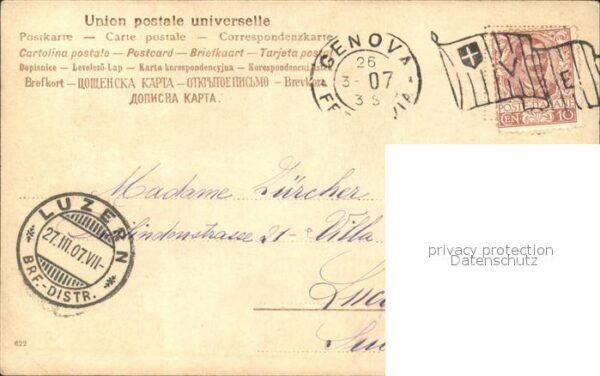 Union postale universelle
Postkarte — Carte postale — Correspondenzkarte
Cartolina postale — Postcard — Briefkaart — Tarjeta postal
Dopisnice - Levelező-Lap — Karta korespondencyjna — Korespondenční
Brefkort - ЦОЩЕНСКА КАРТА - ОТКРЫТОЕ ПИСЬМО - Brevkort
ДОПИСНА КАРТА.
GENOVA
26
3-07
FE VIA
E
POSTE ITALIANE
CEN 10
Madame Zürcher
Lindenstrasse 21 - Villa
LUZERN
27.III.07.VII-
BRF.-DISTR.
privacy protection
Datenschutz
622